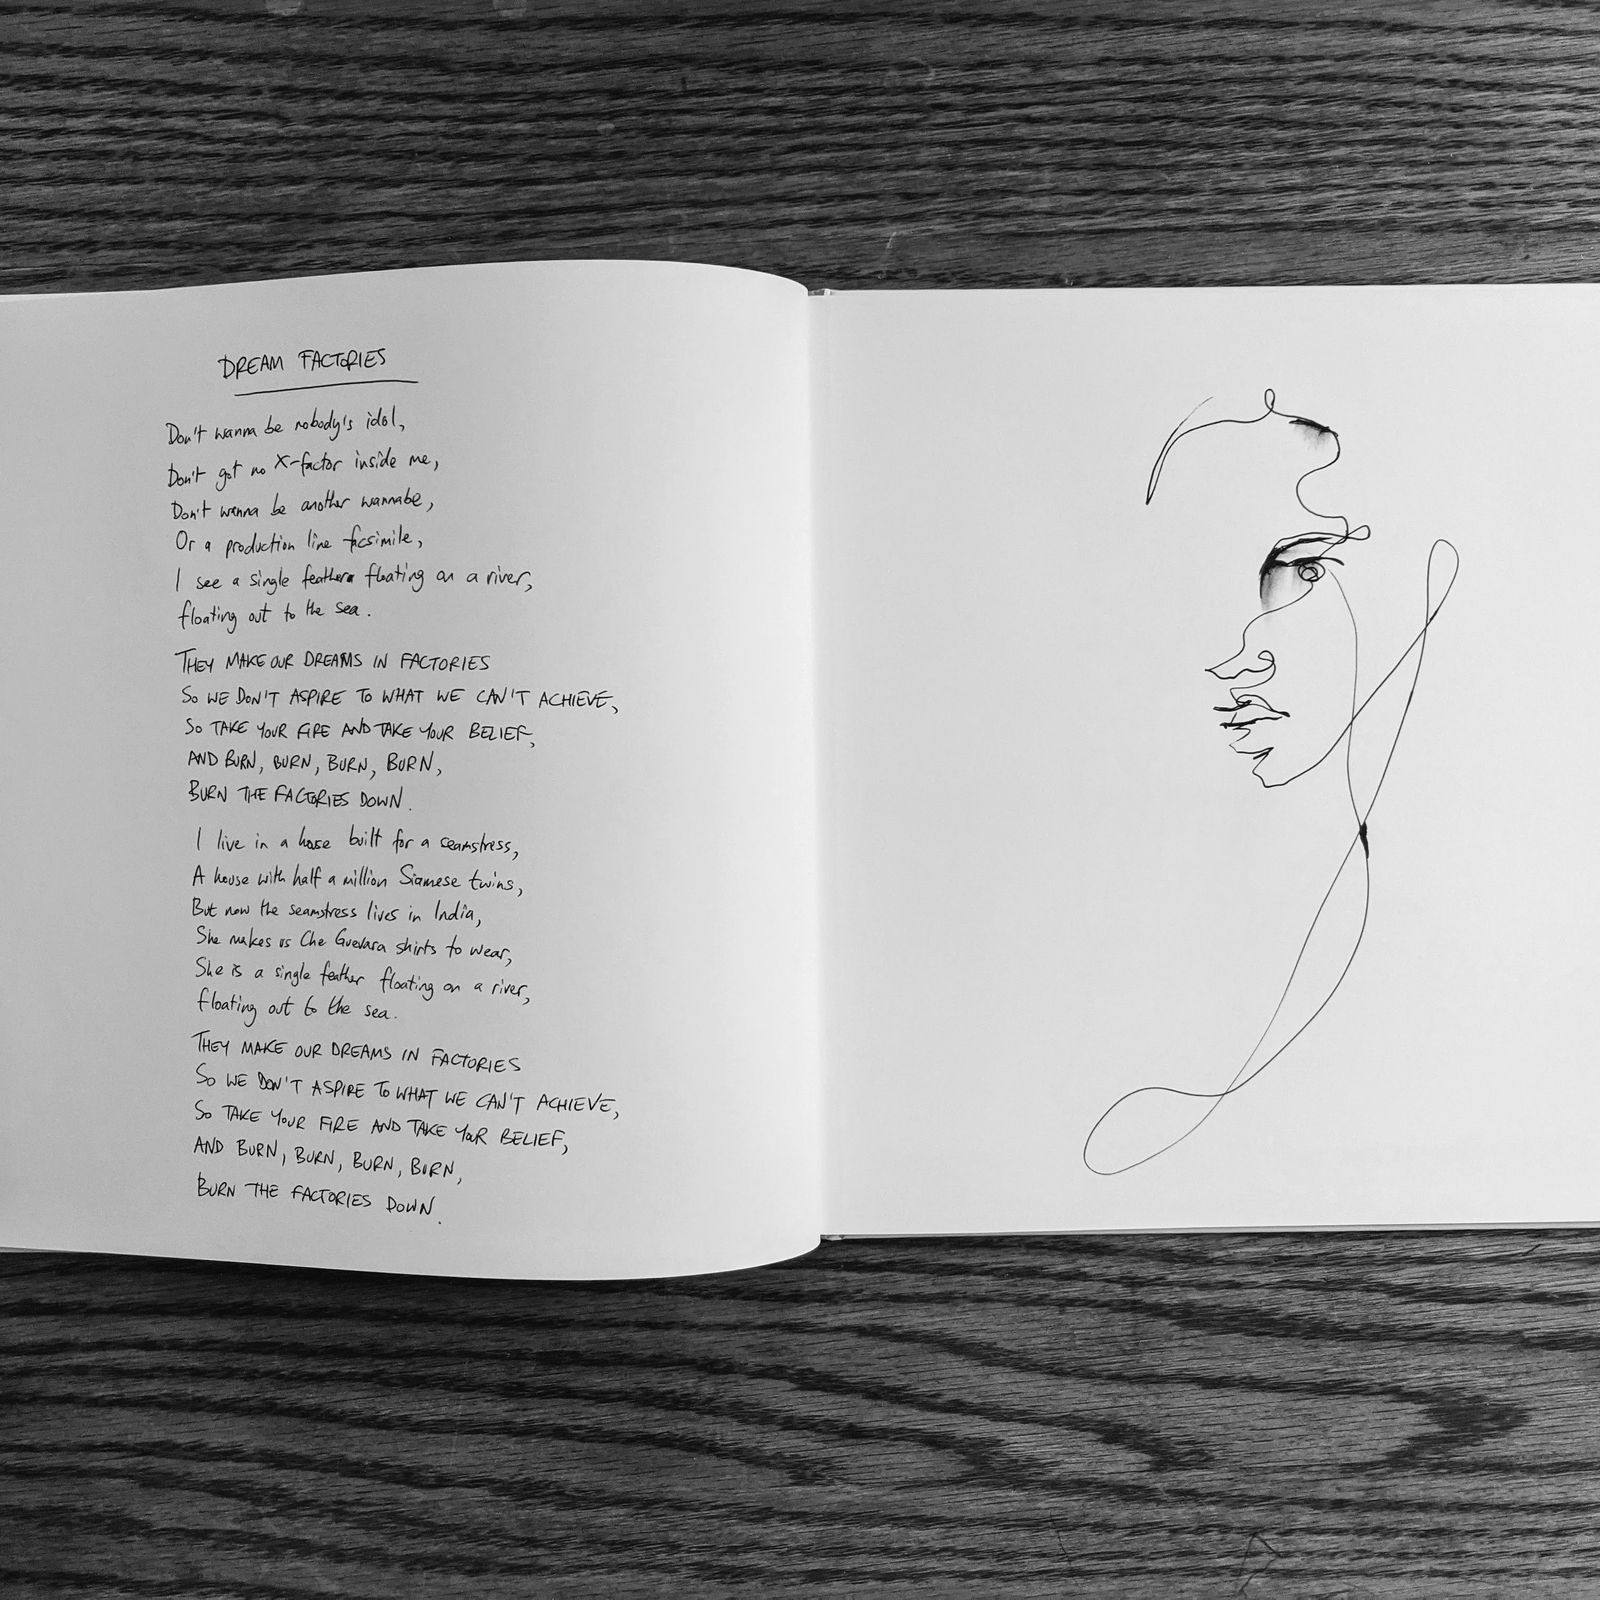 DREAM FACTORIES
Don't wanna be nobody's idol,
Don't got no X-factor inside me,
Don't wanna be another wannabe,
Or a production line facsimile,
I see a single feather floating on a river,
floating out to the sea.
THEY MAKE OUR DREAMS IN FACTORIES
SO WE DON'T ASPIRE TO WHAT WE CAN'T ACHIEVE,
SO TAKE YOUR FIRE AND TAKE YOUR BELIEF,
AND BURN, BURN, BURN, BURN,
BURN THE FACTORIES DOWN.
I live in a house built for a seamstress,
A house with half a million Siamese twins,
But now the seamstress lives in India,
She makes us Che Guevara shirts to wear,
She is a single feather floating on a river,
floating out to the sea.
THEY MAKE OUR DREAMS IN FACTORIES
SO WE DON'T ASPIRE TO WHAT WE CAN'T ACHIEVE,
SO TAKE YOUR FIRE AND TAKE YOUR BELIEF,
AND BURN, BURN, BURN, BURN,
BURN THE FACTORIES DOWN.